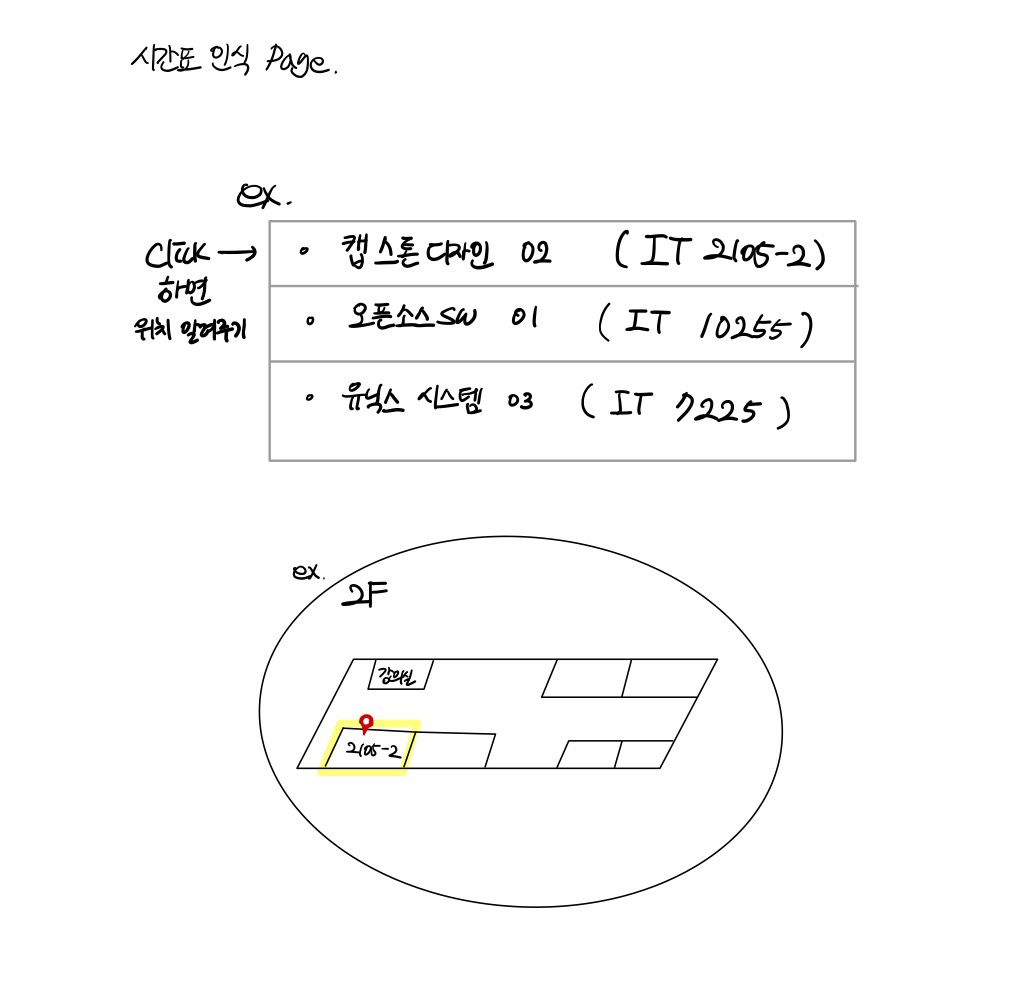 시간표 인식 Page.
ex.
Click →
하면
위치 알려주기
• 캡스톤디자인 02 (IT 2105-2)
• 오픈소스SW 01 (IT 10255)
• 유닉스 시스템 03 (IT 7225)
ex.
2F
강의실
2105-2